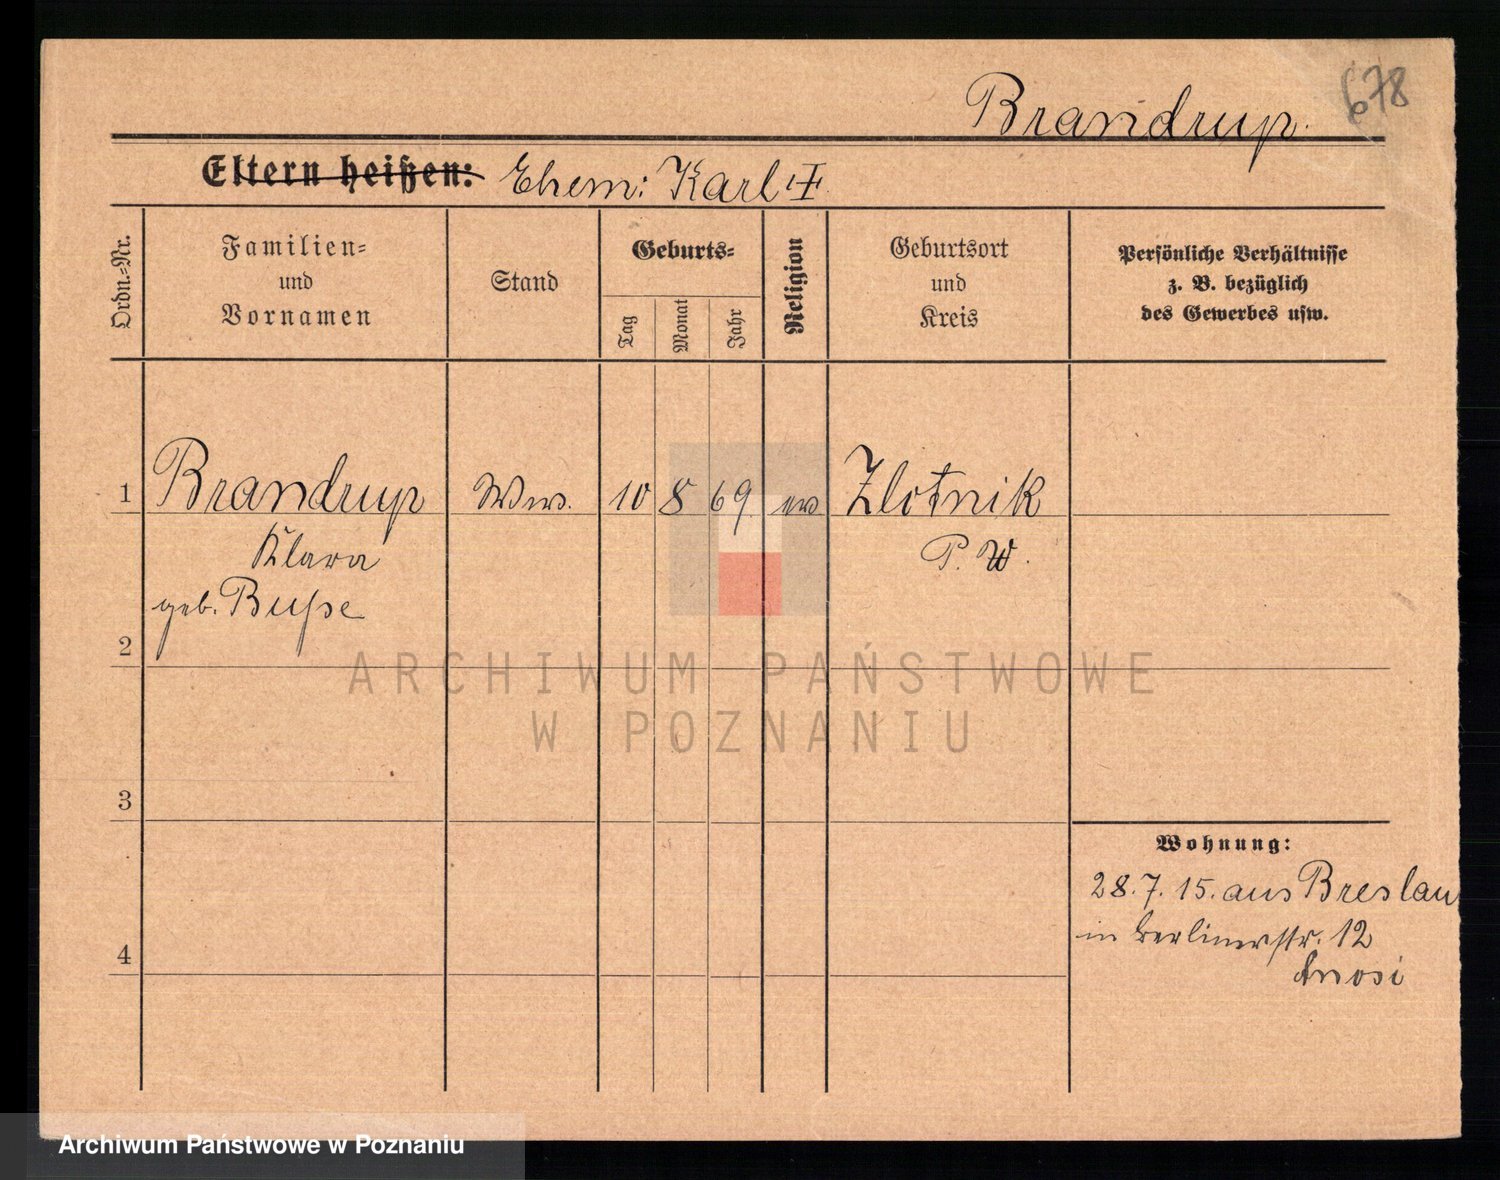 678
Brandrup.
Eltern heißen: Ehem: Karl
Ordn.=Nr.
Familien=
und
Vornamen
Stand
Geburts=
Tag
Monat
Jahr
Religion
Geburtsort
und
Kreis
Persönliche Verhältnisse
z. B. bezüglich
des Gewerbes usw.
1 Brandrup Ww. 10 8 69 ev Zlotnik
Klara P. W.
geb. Buße
2
3
4
Wohnung:
28.7.15. aus Breslau
in Berlinerstr. 12
ARCHIWUM PAŃSTWOWE
W POZNANIU
Archiwum Państwowe w Poznaniu